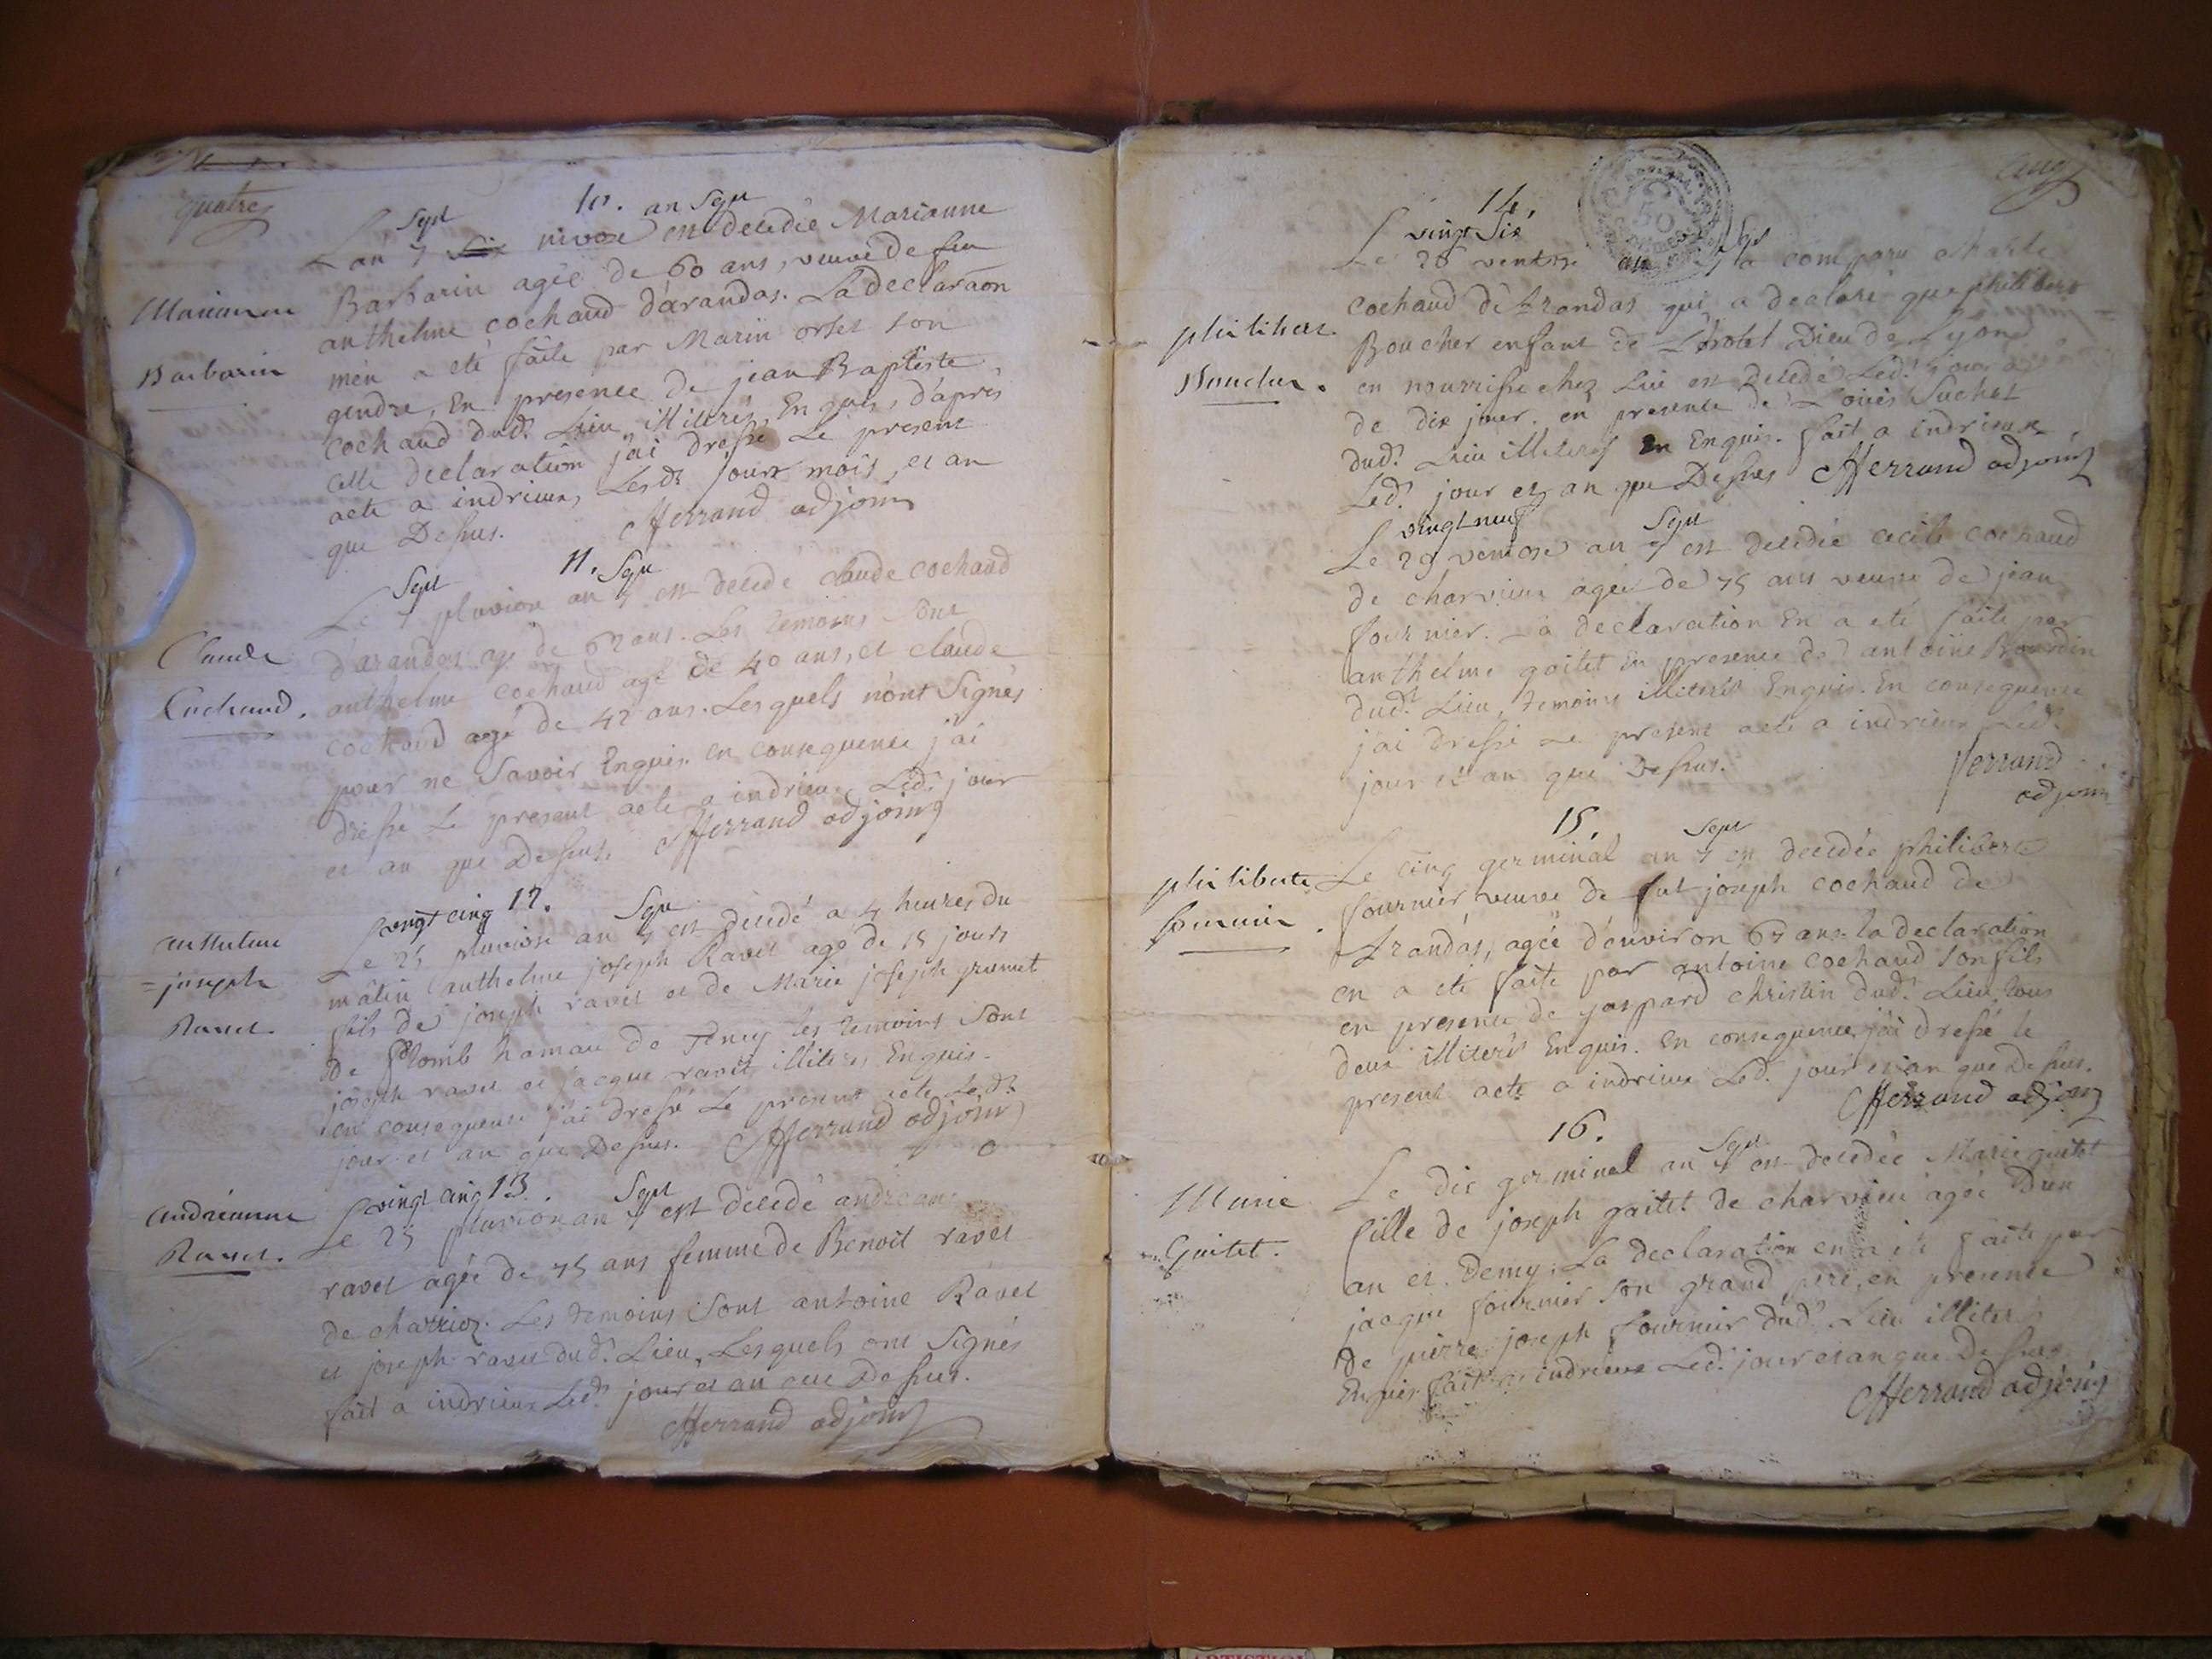 quatre
10.
Sept an Sept
Lan 7 six nivose est decedée Marianne
Marianne
Barbarin
Barbarin agée de 60 ans, veuve de feu
anthelme cochaud d'arandas. La declaraon
m'en a eté faite par Marin orset son
gendre, En presence de jean Baptiste
cochaud dud. Lieu illiterés, Enquis, d'apres
cette declaration j'ai dressé Le present
acte a indrieux, Lesd. jour mois, et an
que Dessus. Fferrand adjoint
11.
Sept Sept
Le 7 pluviose an 7 est decedé claude cochaud
Claude
Cochaud.
d'arandas agé de 62 ans. Les temoins sont
anthelme cochaud agé de 40 ans, et claude
cochaud agé de 42 ans. Lesquels n'ont Signés
pour ne Savoir Enquis. en consequence j'ai
dressé Le present acte a indrieux Led. jour
et an que Dessus. Fferrand adjoint
12.
vingt cinq Sept
Le 25 pluviose an 7 est decedé a 4 heures du
anthelme
=joseph
Ravet.
mâtin anthelme joseph Ravet agé de 15 jours
fils de joseph ravet et de Marie joseph grumet
de Plomb hamau de Tenay les temoins Sont
joseph ravet et jacque ravet, illiterés Enquis.
en consequence j'ai dressé Le present acte Led.
jour et an que Dessus. Fferrand adjoint
13.
vingt cinq Sept
Le 25 pluviose an 7 est decedé andreane
Andréanne
Ravet.
ravet agée de 75 ans femme de Benoit ravet
de charrioz. Les temoins Sont antoine Ravet
et joseph ravet dud. Lieu, Lesquels ont Signés
fait a indrieux Led. jour et an que Dessus.
Fferrand adjoint
cinq
14.
vingt Six Sept
Le 26 ventose an 7 a comparu
philibert
Boucher.
cochaud de Arandas qui a declaré que philibert
Boucher enfant de L'hotel Dieu de Lyon
en nourrisse chez Lui est Decedé Led. jour agé
de dix jour. en presence de Louis Suchet
dud. Lieu illiterés En Enquis. fait a indrieux
Led. jour et an que Dessus Fferrand adjoint
vingt neuf Sept
Le 29 ventose an 7 est decedée cecile cochaud
de charvieux agée de 75 ans veuve de jean
fournier. La declaration En a eté faite par
anthelme goitet En presence de antoine Bourdin
dud. Lieu, temoins illiterés Enquis. En consequence
j'ai dressé Le present acte a indrieux Led.
jour et an que Dessus. fferrand
adjoint
15.
Sept
Le cinq germinal an 7 est decedée philiberte
philiberte
fournier.
fournier veuve de fut joseph cochaud de
Arandas, agée d'environ 67 ans. la declaration
en a eté faite par antoine cochaud Son fils
en presence de gaspard christin dud. Lieu, tous
deux illiterés Enquis. En consequence j'ai dressé le
present acte a indrieux Led. jour et an que Dessus.
Fferrand adjoint
16.
Sept
Le dix germinal an 7 est decedée Marie goitet
Marie
Goitet.
fille de joseph goitet de charvieu agée D'un
an et Demy. La declaration en a eté faite par
jacque fournier Son grand pere, en presence
de pierre joseph fournier dud. Lieu illiterés
Enquis fait a indrieux Led. jour et an que Dessus
Fferrand adjoint